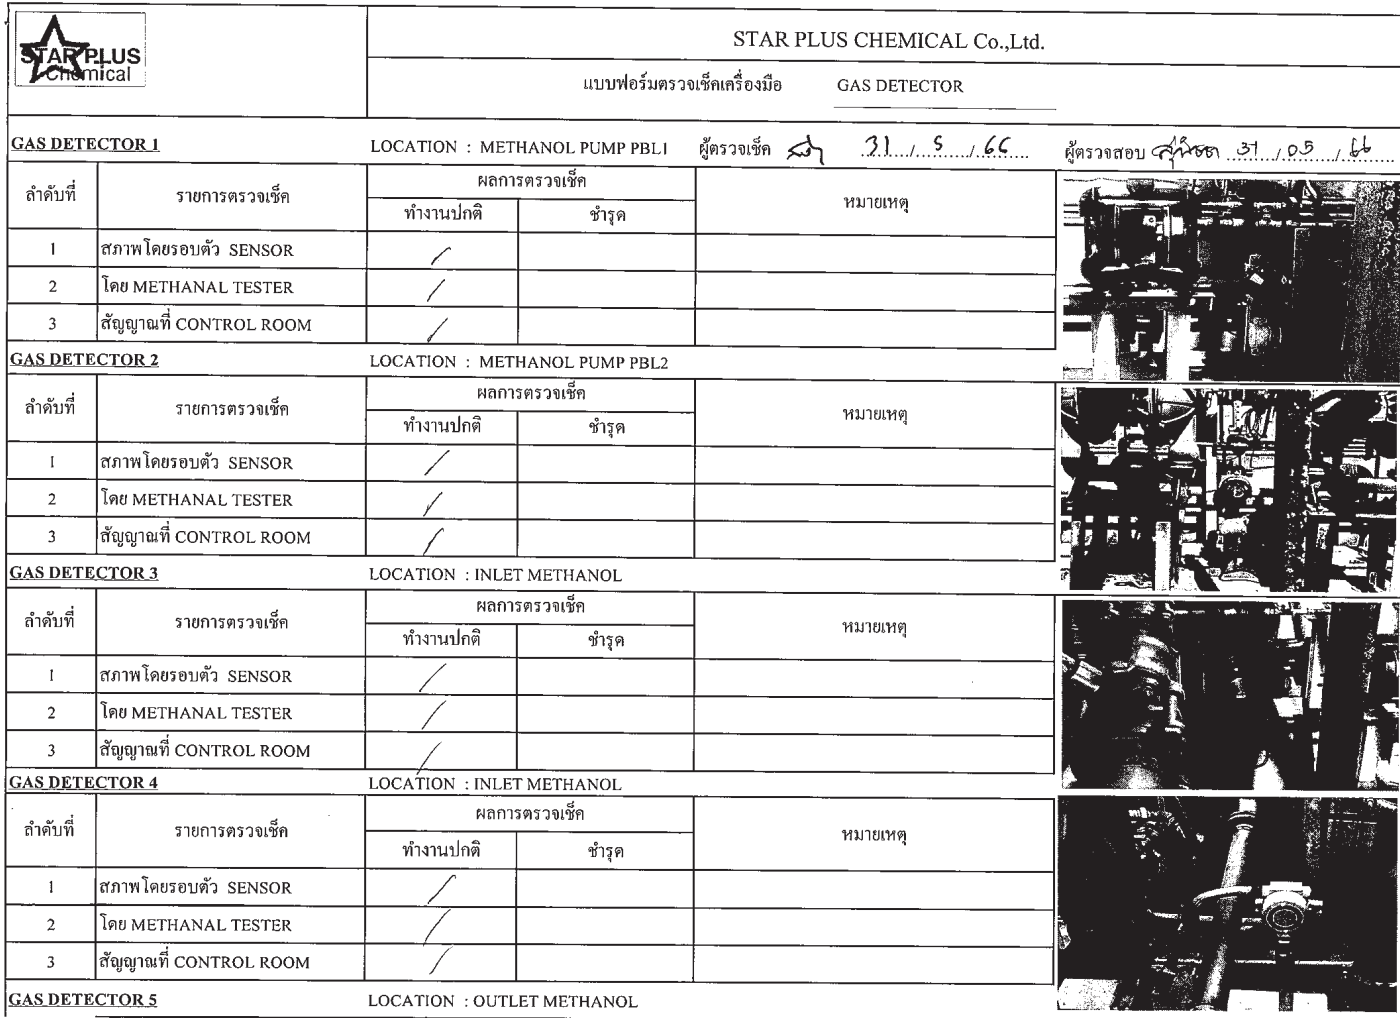 STAR PLUS
Chemical
STAR PLUS CHEMICAL Co.,Ltd.
แบบฟอร์มตรวจเช็คเครื่องมือ GAS DETECTOR
GAS DETECTOR 1 LOCATION : METHANOL PUMP PBL1 ผู้ตรวจเช็ค 31 / 5 / 66 ผู้ตรวจสอบ 31 / 05 / 66
ลำดับที่ รายการตรวจเช็ค ผลการตรวจเช็ค หมายเหตุ
ทำงานปกติ ชำรุด
1 สภาพโดยรอบตัว SENSOR /
2 โดย METHANAL TESTER /
3 สัญญาณที่ CONTROL ROOM /
GAS DETECTOR 2 LOCATION : METHANOL PUMP PBL2
ลำดับที่ รายการตรวจเช็ค ผลการตรวจเช็ค หมายเหตุ
ทำงานปกติ ชำรุด
1 สภาพโดยรอบตัว SENSOR /
2 โดย METHANAL TESTER /
3 สัญญาณที่ CONTROL ROOM /
GAS DETECTOR 3 LOCATION : INLET METHANOL
ลำดับที่ รายการตรวจเช็ค ผลการตรวจเช็ค หมายเหตุ
ทำงานปกติ ชำรุด
1 สภาพโดยรอบตัว SENSOR /
2 โดย METHANAL TESTER /
3 สัญญาณที่ CONTROL ROOM /
GAS DETECTOR 4 LOCATION : INLET METHANOL
ลำดับที่ รายการตรวจเช็ค ผลการตรวจเช็ค หมายเหตุ
ทำงานปกติ ชำรุด
1 สภาพโดยรอบตัว SENSOR /
2 โดย METHANAL TESTER /
3 สัญญาณที่ CONTROL ROOM /
GAS DETECTOR 5 LOCATION : OUTLET METHANOL